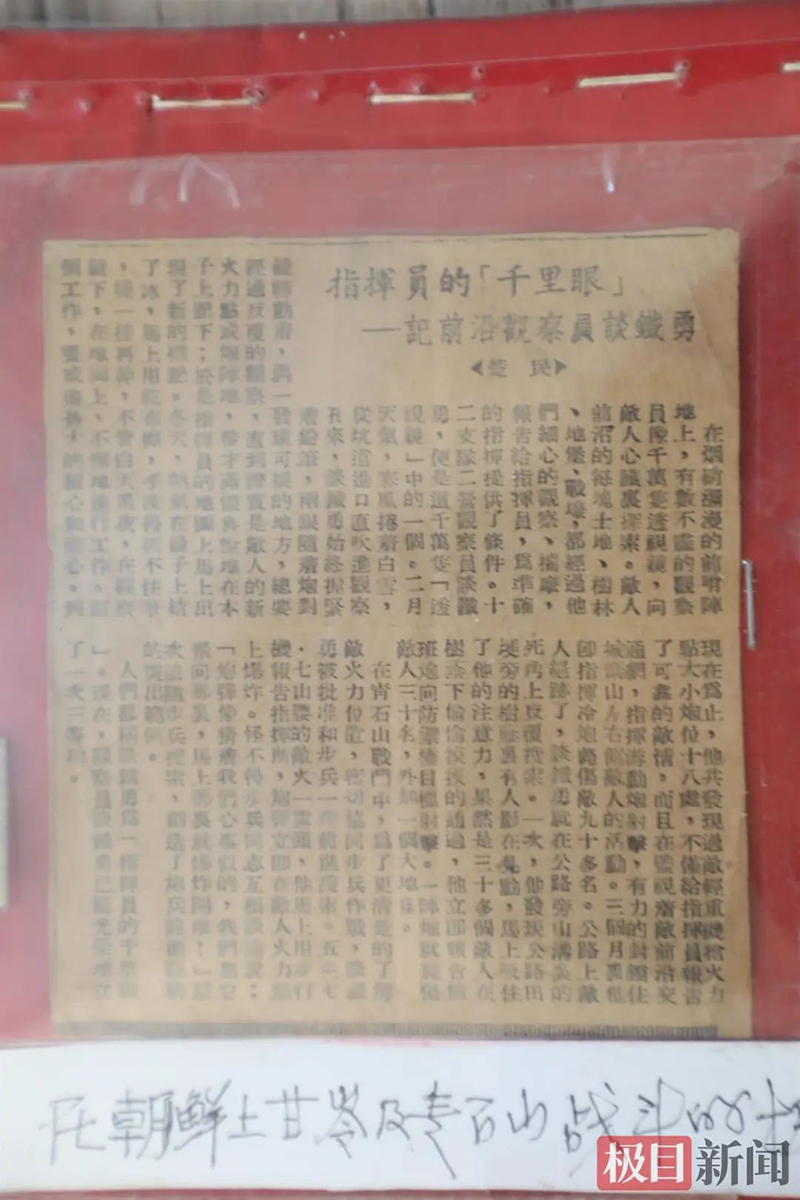 指揮員的「千里眼」
—記前沿觀察員談鐵勇
楚 民
在烟硝瀰漫的前哨陣
地上，有數不盡的觀察
員像千萬隻透視鏡，向
敵人心臟裏探索。敵人
前沿的每塊土地、樹林
、地堡、戰壕，都經過他
們細心的觀察、揣摩，
報告給指揮員，爲準確
的指揮提供了條件。十
二支隊二營觀察員談鐵
勇，便是這千萬隻「透
視鏡」中的一個。二月
天氣，寒風捲着白雪，
從坑道進口直吹進觀察
孔來，談鐵勇始終握緊
着鉛筆，兩眼隨着炮對
鏡轉動着，偶一發現可疑的地方，總要
經過反覆的觀察，直到證實是敵人的新
火力點或炮陣地，他才地在本
子上記下；於是指揮員的地圖上馬上出
現了新的標記。冬天，熱氣在鏡子上結
了冰，馬上用布擦，手凍得不住筆
，一樣再幹，不管白天黑夜，在觀察
鏡下，在地圖上，不停地進行工作。這
個工作，需要極大的細心和耐心。到
現在爲止，他共發現過敵輕重機槍火力
點大小炮位十八處，不僅給指揮員報告
了可靠的敵情，而且在監視着敵前沿交
通網，指揮游動炮射擊，有力的封鎖住
山左右側敵人的活動。三個月裏他
卽指揮冷炮斃傷敵九十多名。公路上敵
人絕跡了，談鐵勇就在公路旁山溝裏的
死角上反覆搜索。一次，他發現公路田
埂旁的樹叢裏有人影在晃動，馬上吸住
了他的注意力，果然是三十多個敵人在
樹叢下偷偷摸摸的通過，他立卽報告值
班炮向防禦目標射擊。一陣炮就斃傷
敵人三十名，外加一個大地堡。
在青石山戰鬥中，爲了更清楚的了解
敵火力位置，密切協同步兵作戰，談鐵
勇被批准和步兵一齊前進搜索。五三七
·七山腰的敵火一露頭，他馬上用步行
機報告指揮所，炮彈立卽在敵人火力點
上爆炸。怪不得步兵同志互相談論說：
「炮彈像猜着我們心思似的，我們想它
向那裏，馬上那裏就爆炸開啦！」這
次隨步兵搜索，創造了炮兵前進觀察
的突出範例。
人們都稱談鐵勇爲「指揮員的千里眼
」。現在，觀察員談鐵勇已經光榮地立
了一次三等功。
在朝鲜上甘岭及青石山战斗的
极目新闻